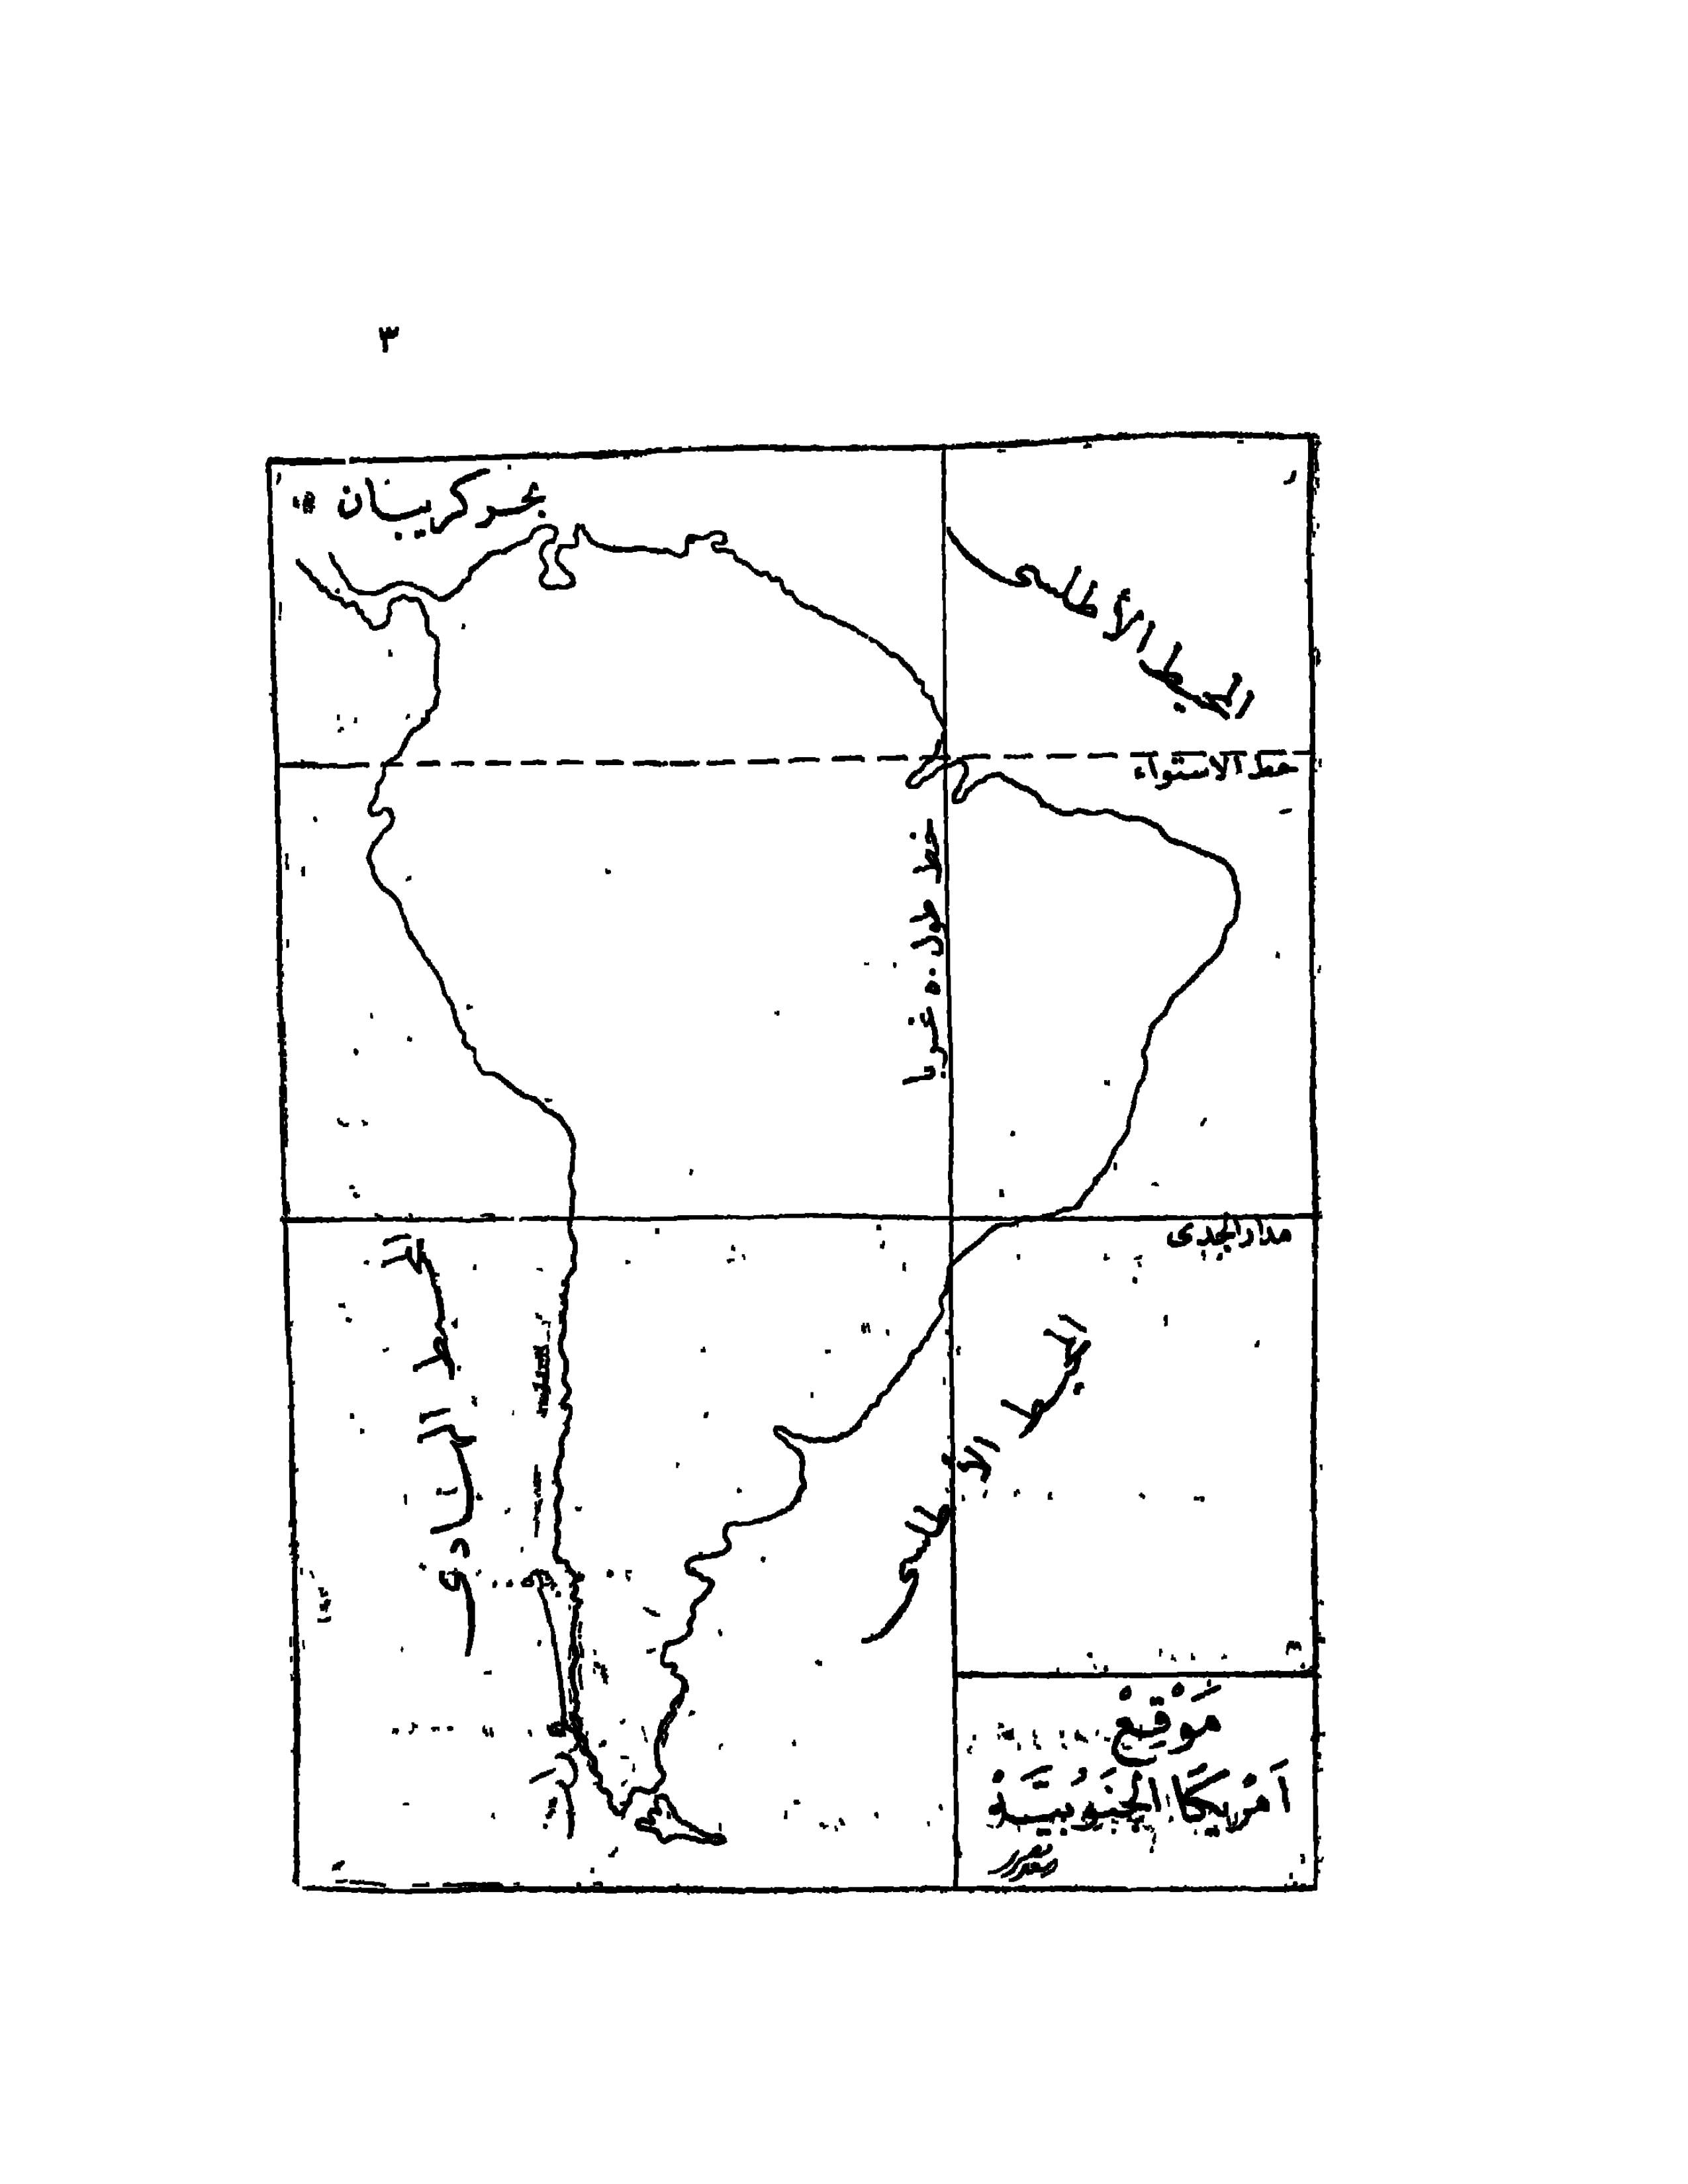 ٣
بحر كريبيان
المحيط الأطلسى
خط الاستواء
خط طول ٥٠ غربا
مدار الجدى
المحيط الهادى
المحيط الأطلسى
مَوْقِعْ
اَمْرِيكَا الجَنُوبِيَّةْ